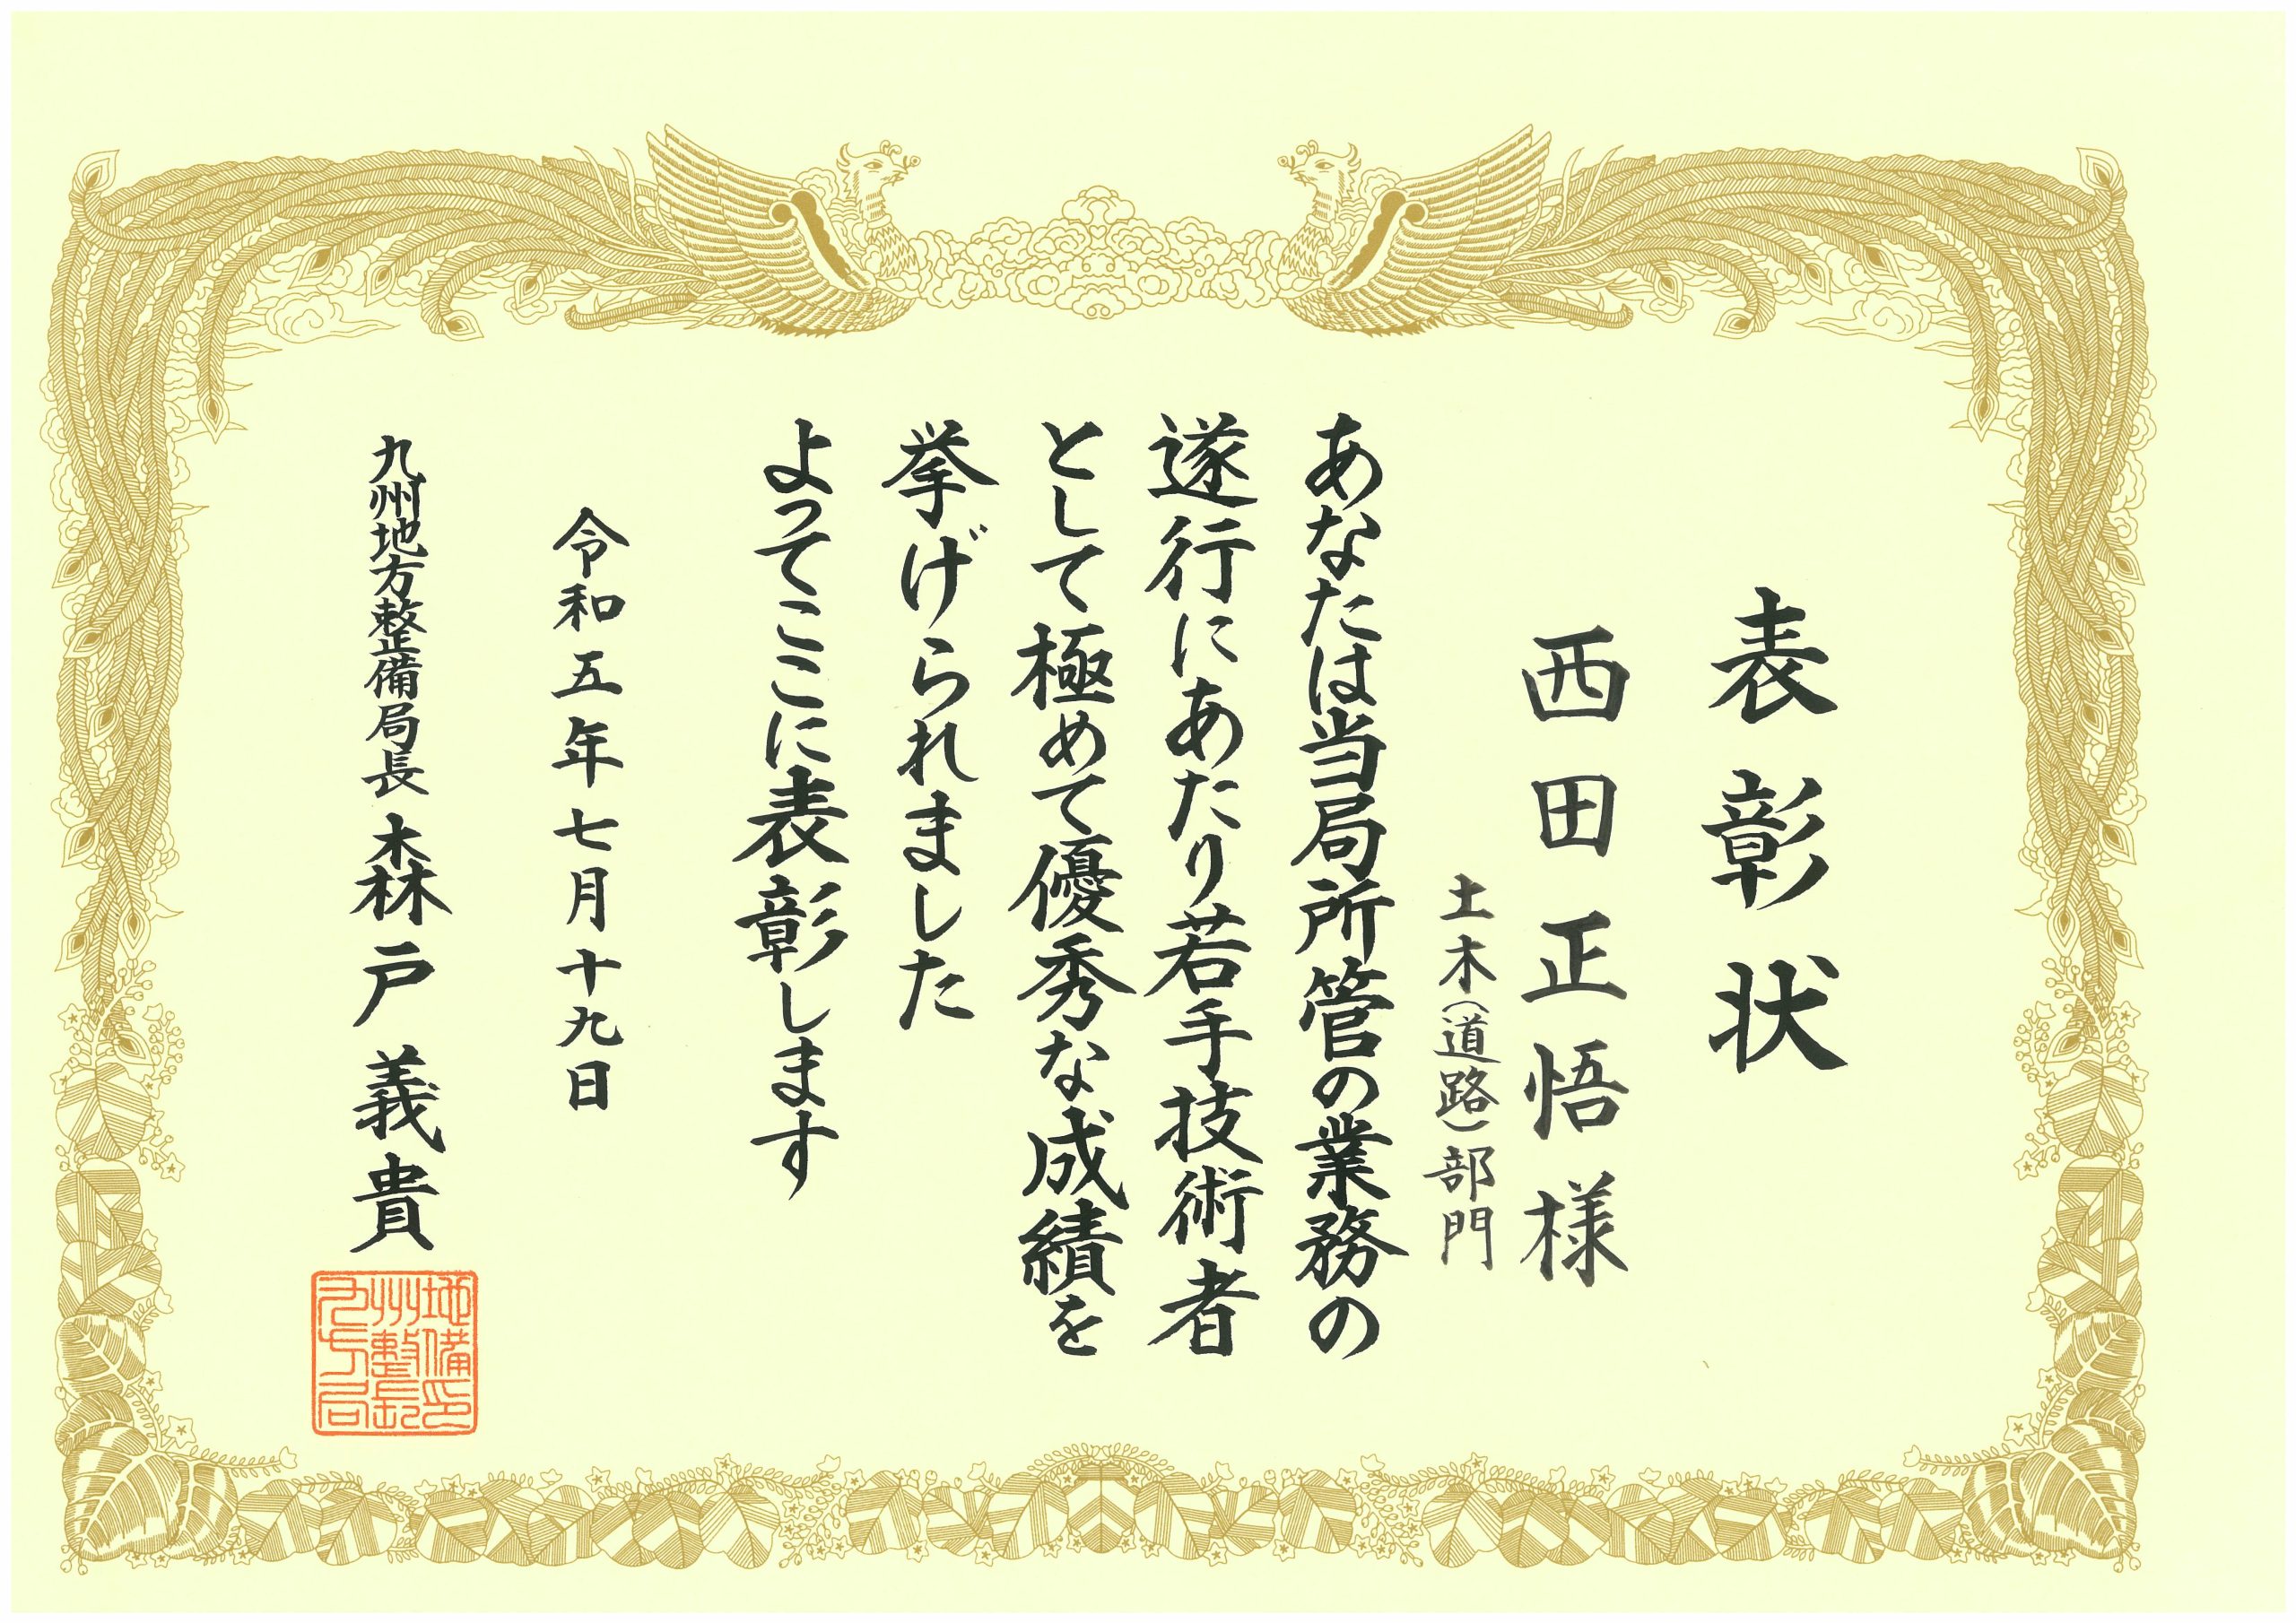 表彰状
西田正悟様
土木（道路）部門
あなたは当局所管の業務の
遂行にあたり若手技術者
として極めて優秀な成績を
挙げられました
よってここに表彰します
令和五年七月十九日
九州地方整備局長 森戸義貴
地備印
州整長
九方局